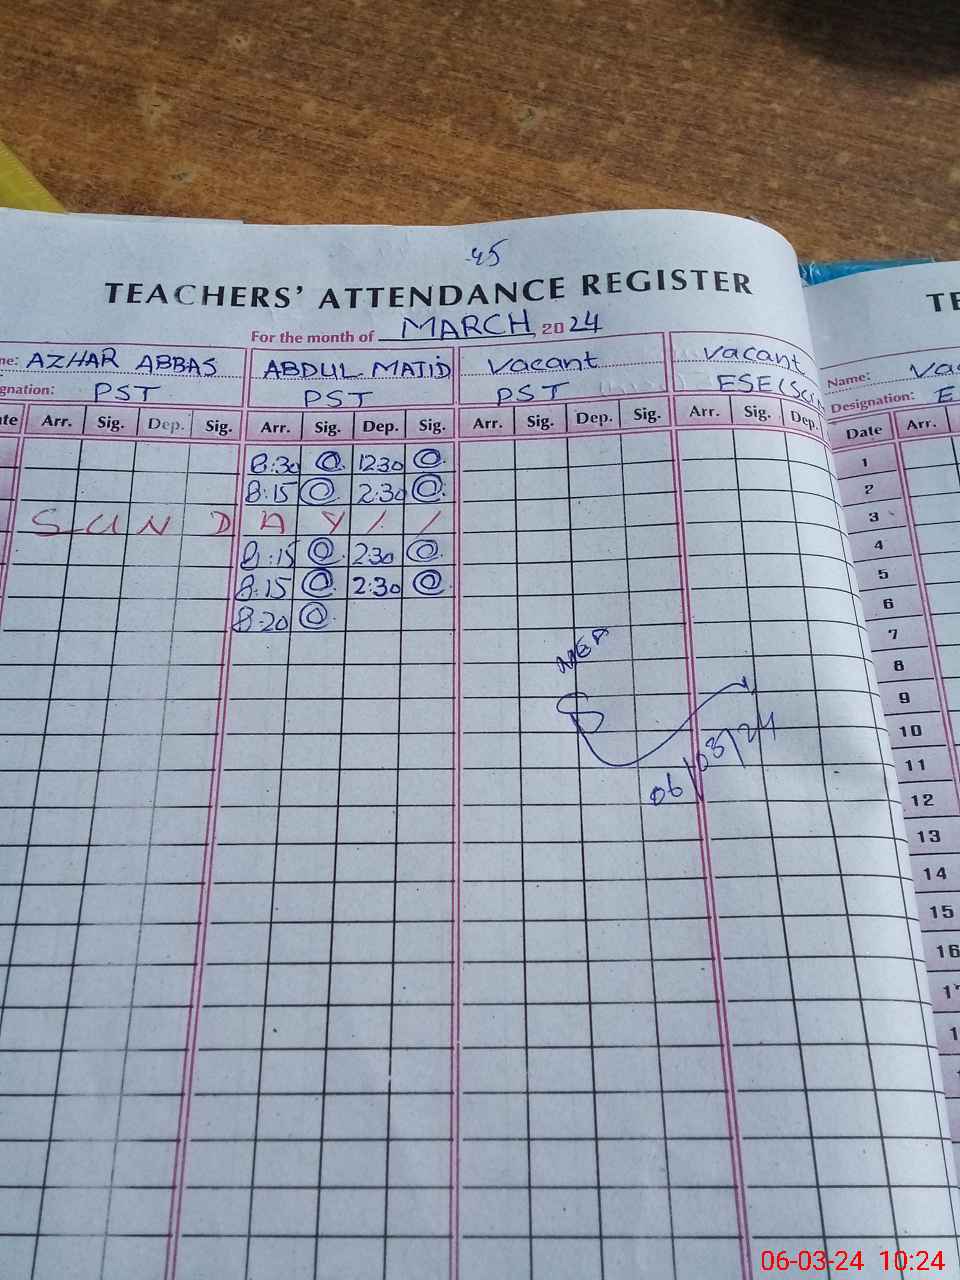 45
TEACHERS' ATTENDANCE REGISTER
For the month of MARCH 2024
AZHAR ABBAS ABDUL MAJID Vacant Vacant
PST PST PST ESE(Sci
Arr. Sig. Dep. Sig. Arr. Sig. Dep. Sig. Arr. Sig. Dep. Sig. Arr. Sig. Dep.
8:30 12:30
8:15 2:30
SUNDAY//
8:15 2:30
8:15 2:30
8:20
MEA
06/03/24
TE
Name: Vac
Designation: E
Date Arr.
1
2
3
4
5
6
7
8
9
10
11
12
13
14
15
16
06-03-24 10:24